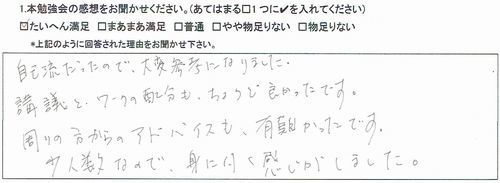 1.本勉強会の感想をお聞かせください。(あてはまる□1つに✔を入れてください)
☑たいへん満足 □まあまあ満足 □普通 □やや物足りない □物足りない
*上記のように回答された理由をお聞かせ下さい。
自己流だったので、大変参考になりました.
講議と、ワークの配分も、ちょうど良かったです。
周りの方からのアドバイスも、有難かったです。
少人数なので、身に付く感じがしました。